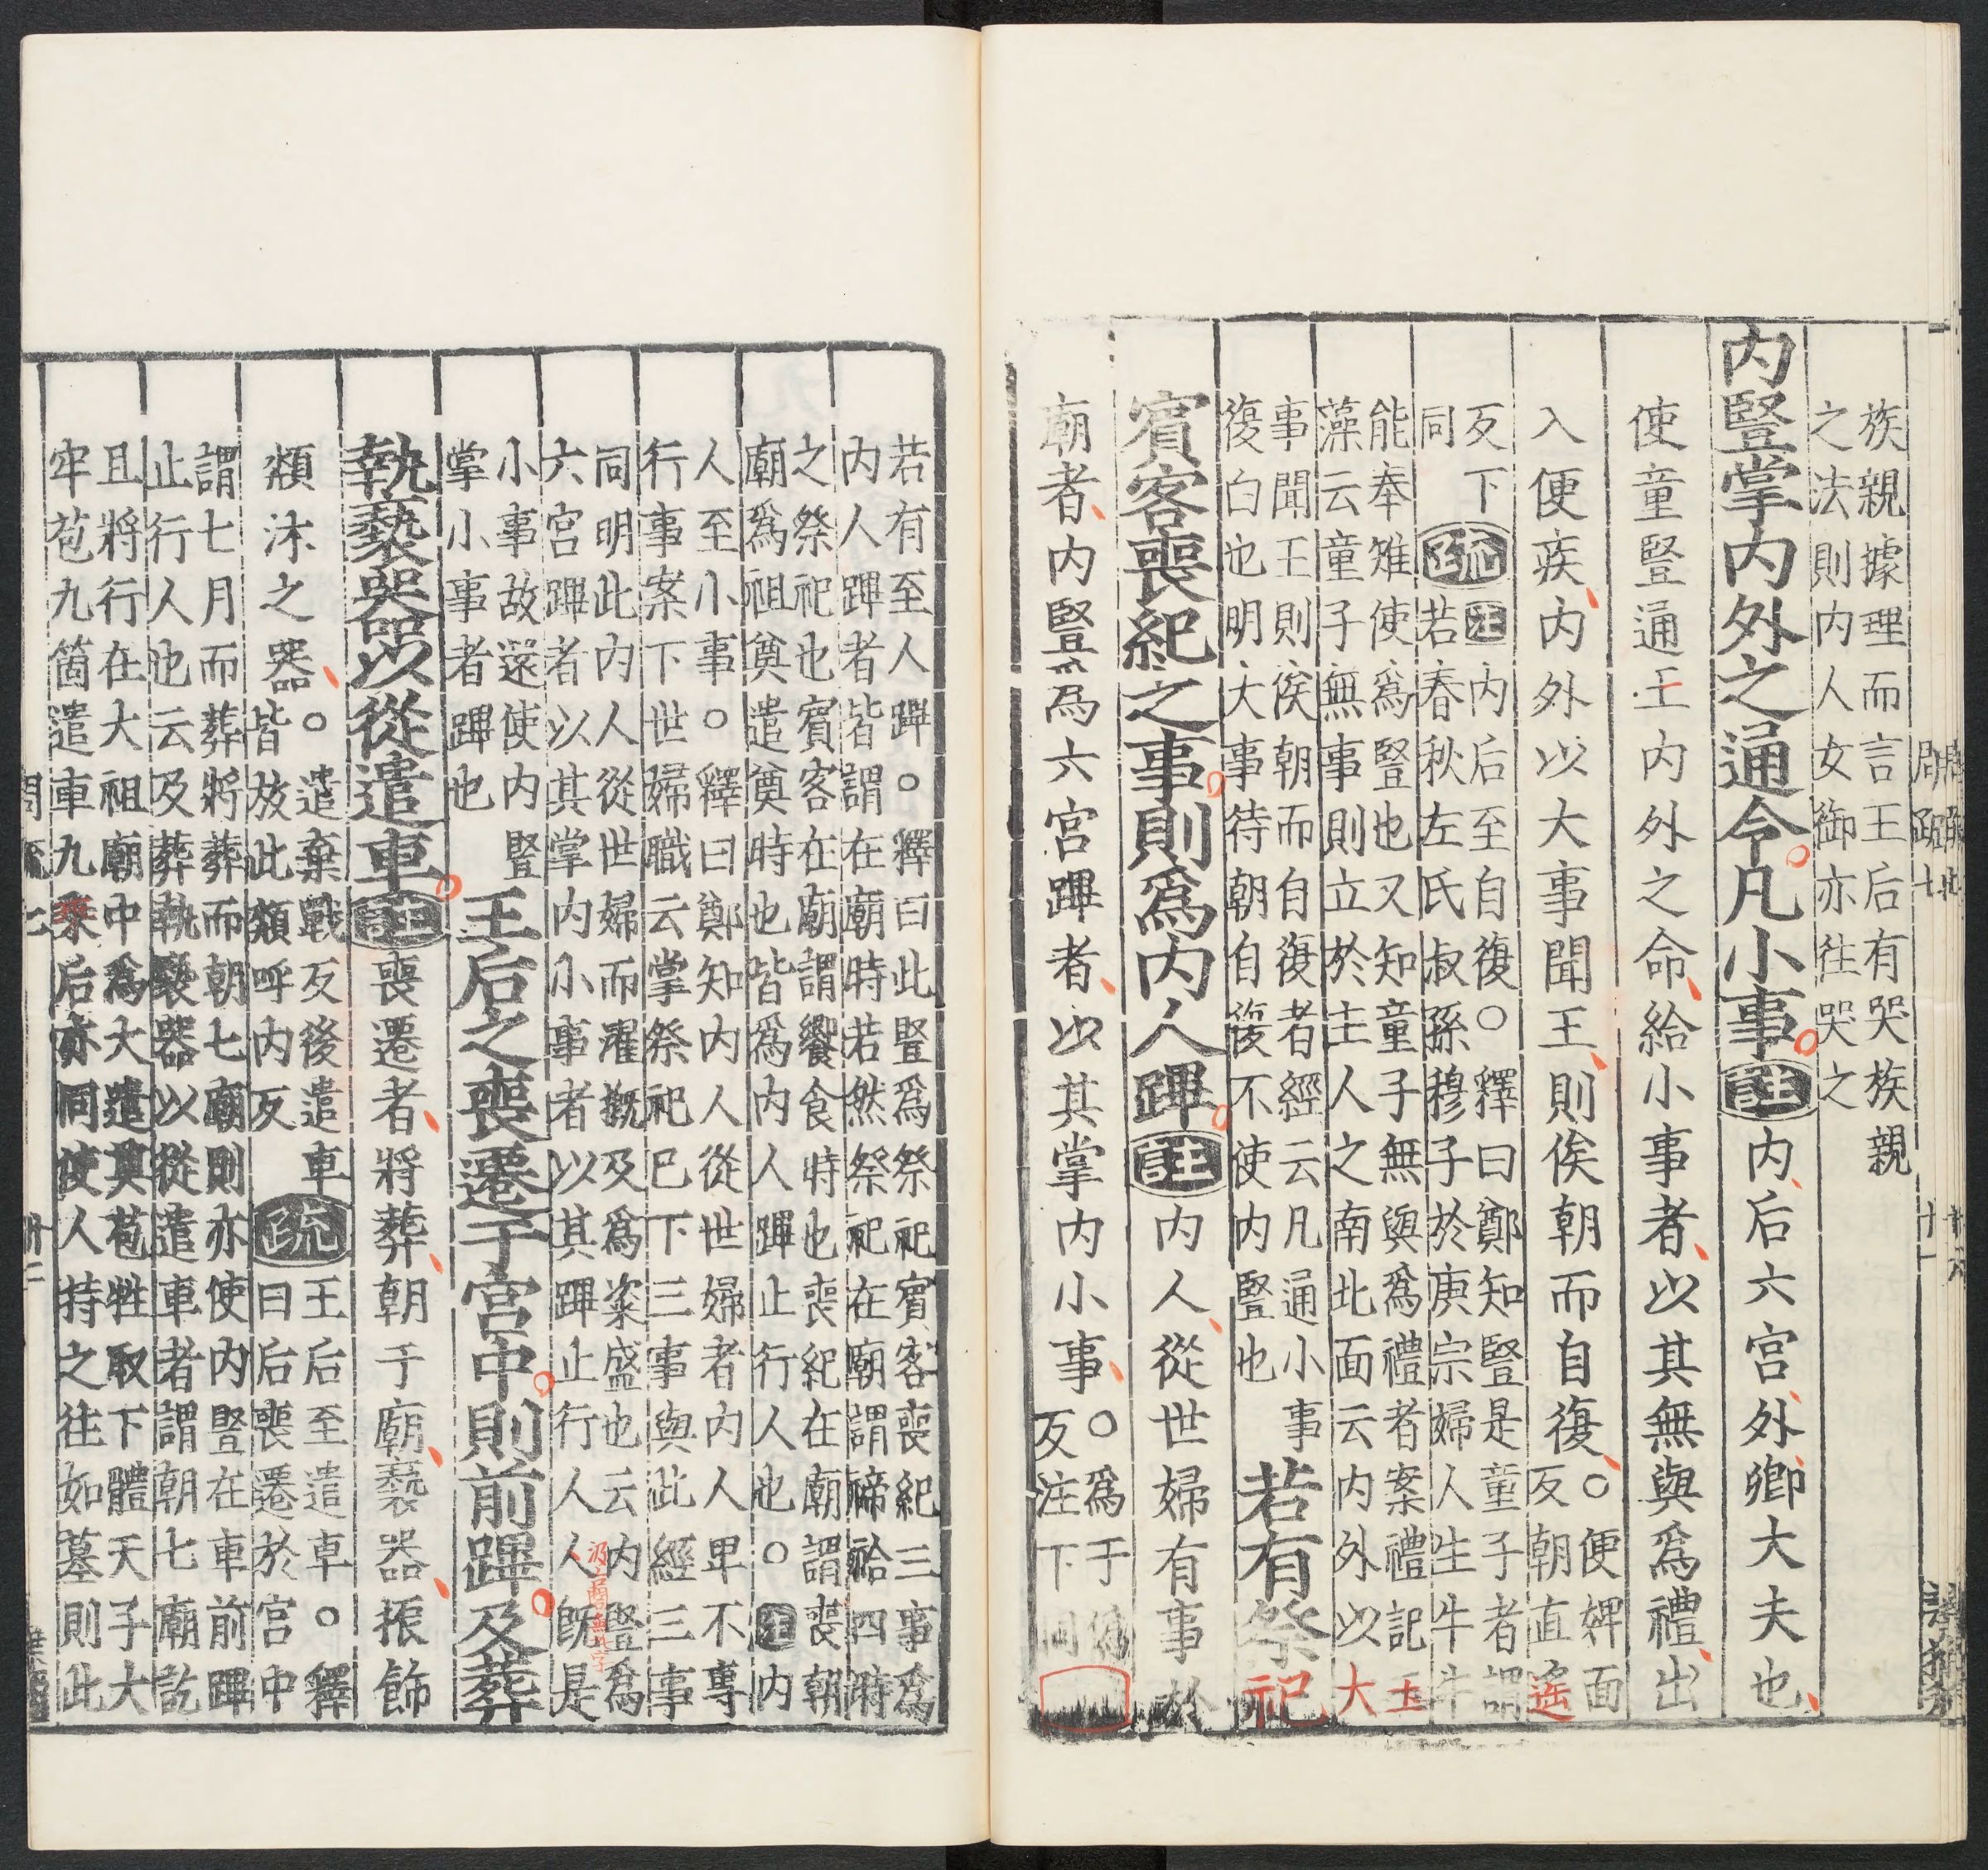 族親據理而言王后有哭族親
之法則内人女御亦往哭之
内豎掌内外之通令凡小事
註
内后六宫外卿大夫也
使童豎通王内外之命給小事者以其無與爲禮出
入便疾内外以大事聞王則俟朝而自復
○便婢面
反朝直遙
反下
同
疏
注内后至自復○釋曰鄭知豎是童子者謂
若春秋左氏叔孫穆子於庚宗婦人生牛牛
能奉雉使爲豎也又知童子無與爲禮者案禮記玉
藻云童子無事則立於主人之南北面云内外以大
事聞王則俟朝而自復者經云凡通小事
復白也明大事待朝自復不使内豎也
若有祭祀
賓客喪紀之事則爲内人蹕
註
内人從世婦有事於
廟者内豎爲六宫蹕者以其掌内小事
○爲于僞
反注下同
若有至人蹕○釋曰此豎爲祭祀賓客喪紀三事爲
内人蹕者皆謂在廟時若然祭祀在廟謂禘祫四時
之祭祀也賓客在廟謂饗食時也喪紀在廟謂喪朝
廟爲祖奠遣奠時也皆爲内人蹕止行人也○注内
人至小事○釋曰鄭知内人從世婦者内人卑不專
行事案下世婦職云掌祭祀巳下三事與此經三事
同明此内人從世婦而濯摡及爲粢盛也云内豎爲
六宫蹕者以其掌内小事者以其蹕止行人人旣是
小事故還使内豎
掌小事者蹕也
王后之喪遷于宫中則前蹕及葬
執褻器以從遣車
註
喪遷者將葬朝于廟褻器振飾
頮沐之器
○遣棄戰反後遣車
皆放此頮呼内反
疏
王后至遣車○釋
曰后喪遷於宫中
謂七月而葬將葬而朝七廟則亦使内豎在車前蹕
止行人也云及葬執褻器以從遣車者謂朝七廟訖
且將行在大祖廟中爲大遣奠苞牲取下體天子大
牢苞九箇遣車九乘后亦同使人持之往如墓則此